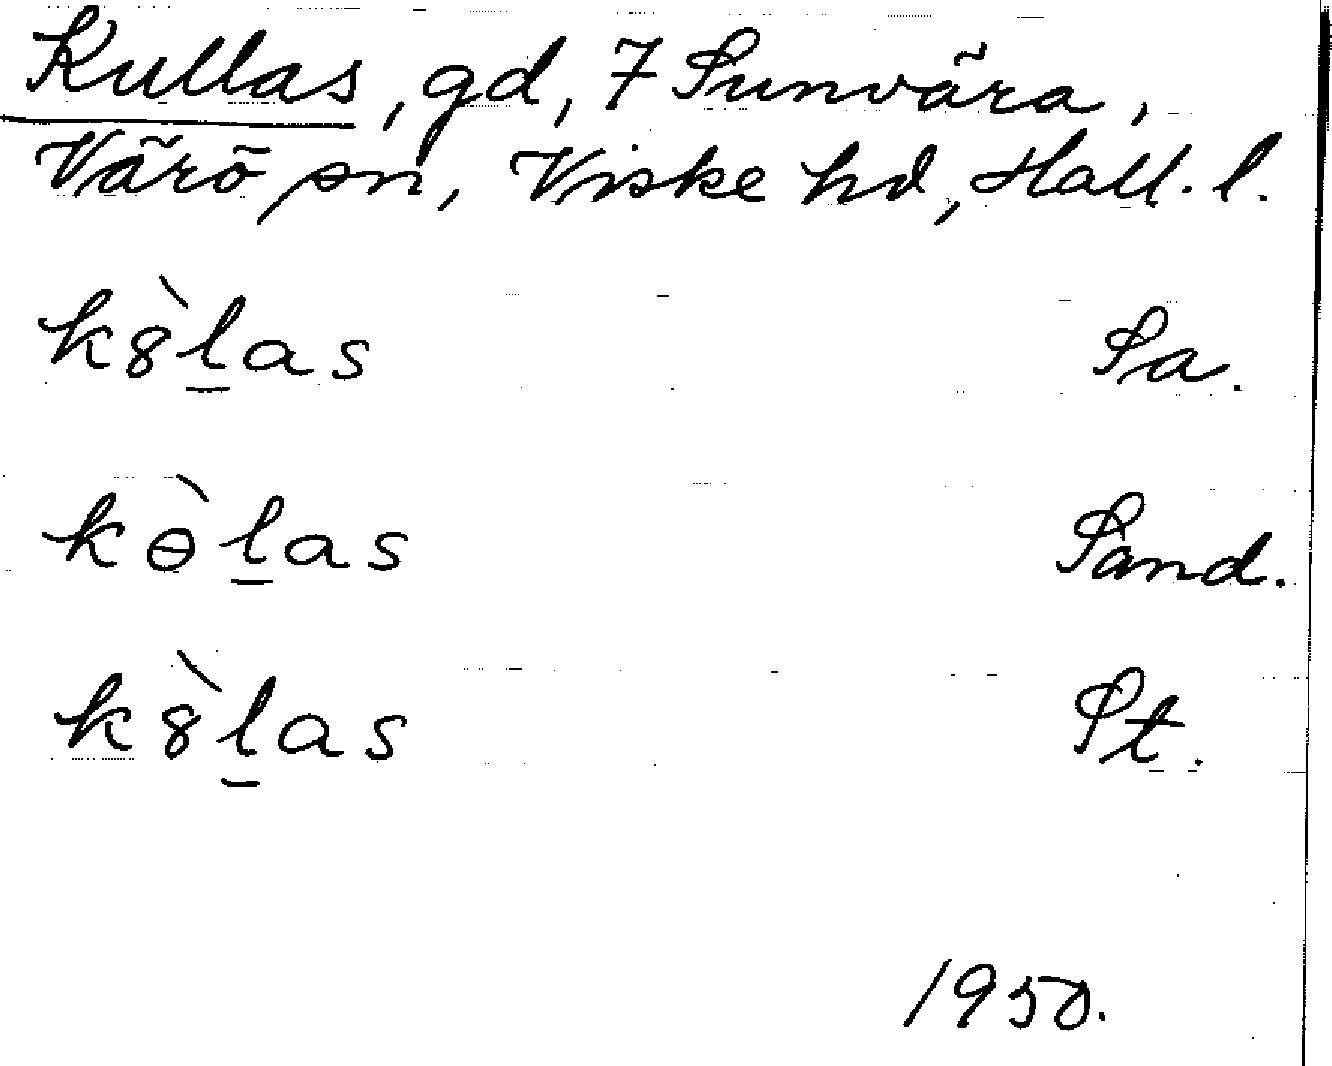 Kullas, gd, 7 Sunvära,
Värö sn, Viske hd, Hall. l.
k8̀l̲as Sa.
kɵ̀l̲as Sand.
k8̀l̲as St.
1950.